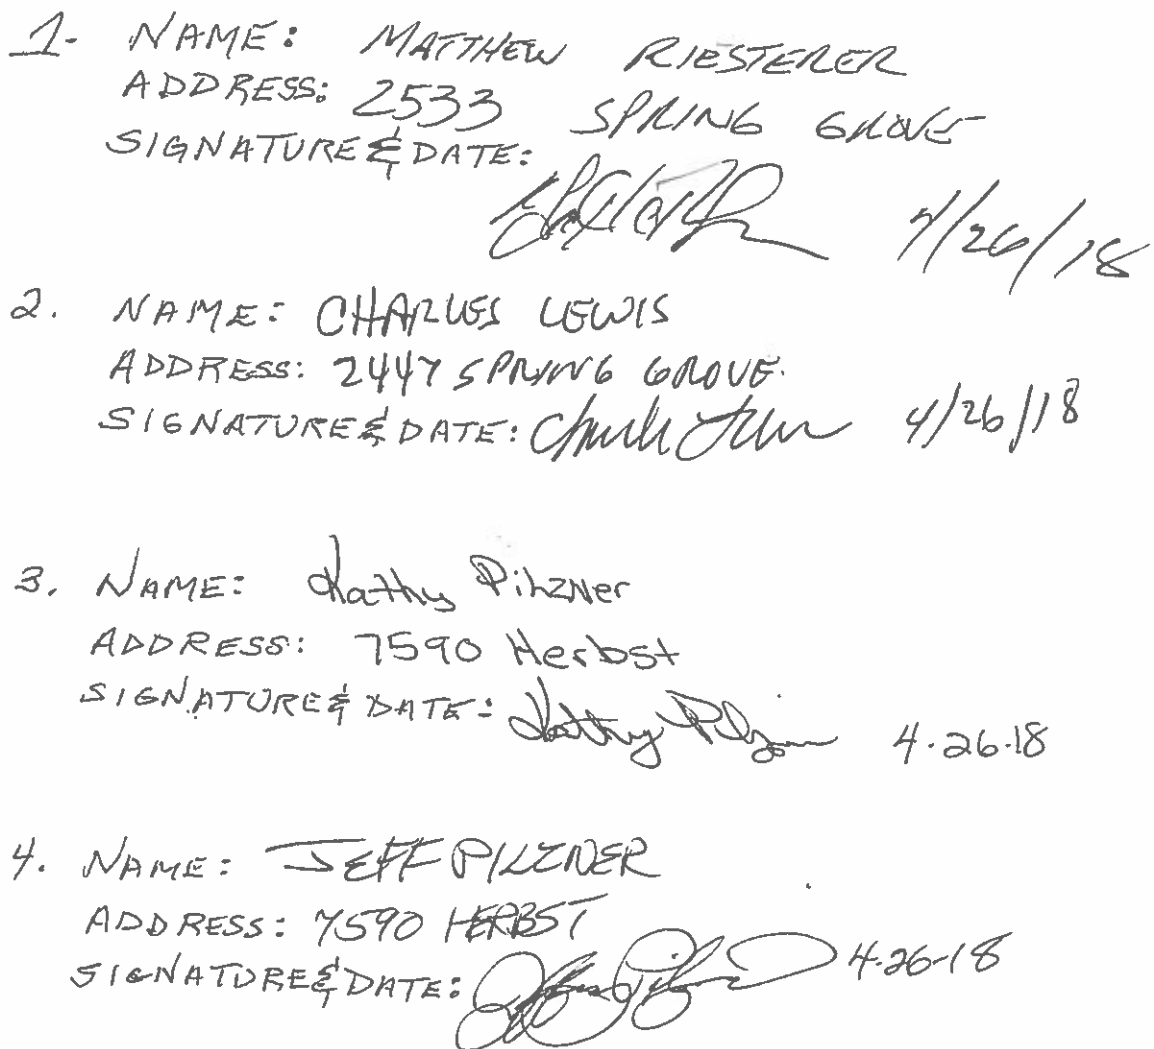 1. NAME: MATTHEW RIESTERER
ADDRESS: 2533 SPRING GROVE
SIGNATURE & DATE:
4/26/18
2. NAME: CHARLES LEWIS
ADDRESS: 2447 SPRING GROVE.
SIGNATURE & DATE: Chuck Lewis 4/26/18
3. NAME: Kathy Pilzner
ADDRESS: 7590 Herbst
SIGNATURE & DATE: Kathy Pilzner 4.26.18
4. NAME: JEFF PILZNER
ADDRESS: 7590 HERBST
SIGNATURE & DATE: 4-26-18